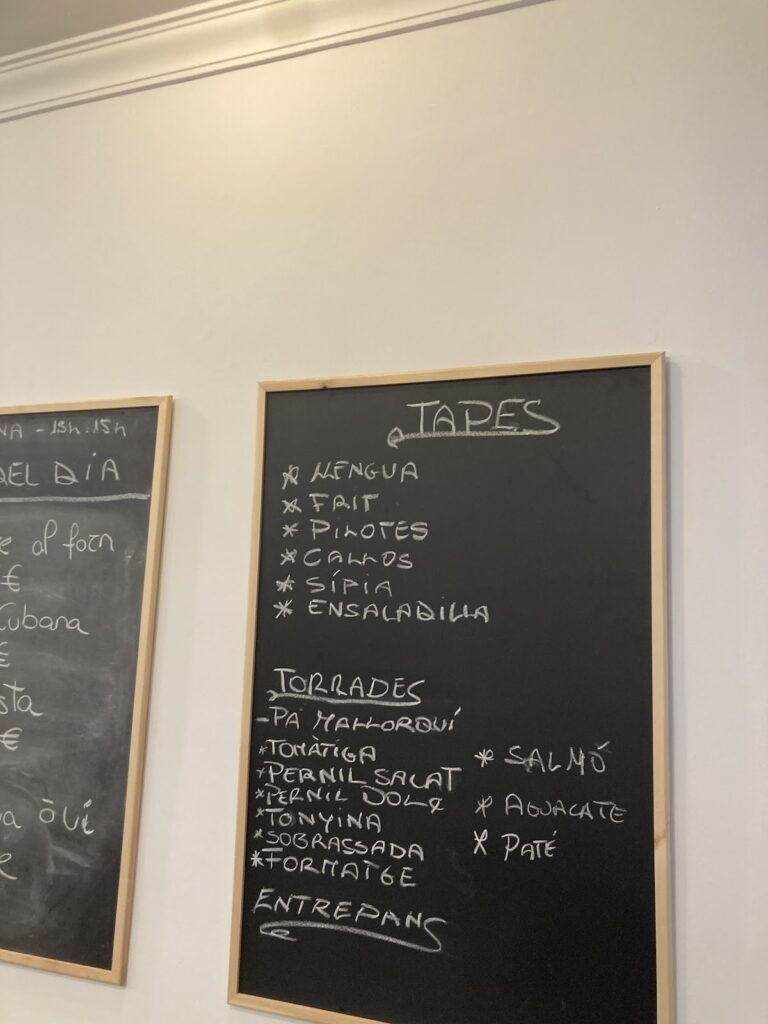 NA - 13h.15h
DEL DÍA
al forn
€
Cubana
€
€
TAPES
* LLENGUA
* FRIT
* PILOTES
* CALLOS
* SÍPIA
* ENSALADILLA
TORRADES
-PA MALLORQUÍ
*TOMÀTIGA
*PERNIL SALAT
*PERNIL DOLÇ
*TONYINA
*SOBRASSADA
*FORMATGE
* SALMÓ
* AGUACATE
* PATÉ
ENTREPANS